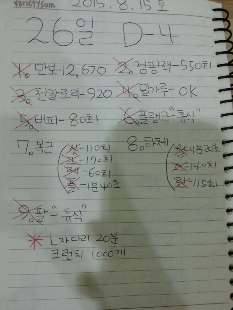 varietysum
2015. 8. 15 토
26일 D-4
1. 만보-12,670 2. 점핑잭-550회
3. 칼로리-920 4. 밀가루-OK
5. 버피-80회 6. 플랭크"휴식"
7. 복근 8. 하체
상-110회
-170회 -140회
-60회 -115회
-1분40초
9. 팔-"휴식"
* L자다리 20분
크런치 1000개